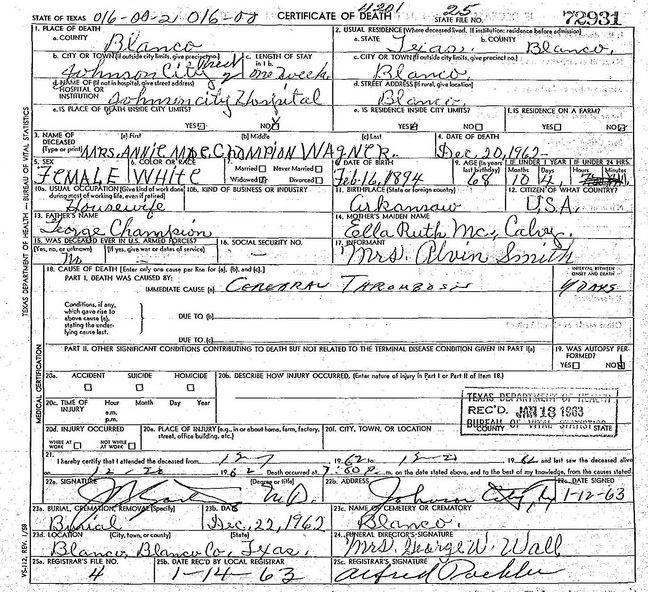 STATE OF TEXAS 016-00-2 016-00 CERTIFICATE OF DEATH 4201 STATE FILE NO. 25 72931
1. PLACE OF DEATH
a. COUNTY Blanco
2. USUAL RESIDENCE (Where deceased lived. If institution: residence before admission)
a. STATE Texas. b. COUNTY Blanco.
b. CITY OR TOWN (If outside city limits, give precinct no.) Johnson City
c. LENGTH OF STAY in 1 b. one week
c. CITY OR TOWN (If outside city limits, give precinct no.) Blanco.
d. NAME OF (If not in hospital, give street address) HOSPITAL OR INSTITUTION Johnson City Hospital
d. STREET ADDRESS (If rural, give location) Blanco.
e. IS PLACE OF DEATH INSIDE CITY LIMITS? YES NO
e. IS RESIDENCE INSIDE CITY LIMITS? YES NO
f. IS RESIDENCE ON A FARM? YES NO
3. NAME OF DECEASED (Type or print) (a) First (b) Middle (c) Last
MRS. ANNIE MAE CHAMPION WAGNER.
4. DATE OF DEATH Dec. 20, 1962-
5. SEX FEMALE
6. COLOR OR RACE WHITE
7. Married Never Married Widowed Divorced
8. DATE OF BIRTH Feb. 16, 1894
9. AGE (In years last birthday) 68
IF UNDER 1 YEAR Months 10 Days 4
IF UNDER 24 HRS. Hours Minutes
10a. USUAL OCCUPATION (Give kind of work done during most of working life, even if retired) Housewife
10b. KIND OF BUSINESS OR INDUSTRY
11. BIRTHPLACE (State or foreign country) Arkansaw
12. CITIZEN OF WHAT COUNTRY? U.S.A.
13. FATHER'S NAME George Champion
14. MOTHER'S MAIDEN NAME Ella Ruth Mc,
15. WAS DECEASED EVER IN U.S. ARMED FORCES? (Yes, no, or unknown) (If yes, give war or dates of service) No
16. SOCIAL SECURITY NO. —
17. INFORMANT Mrs. Alvin Smith
18. CAUSE OF DEATH [Enter only one cause per line for (a), (b), and (c).]
PART I. DEATH WAS CAUSED BY:
IMMEDIATE CAUSE (a) CEREBRAL THROMBOSIS
INTERVAL BETWEEN ONSET AND DEATH 9 DAYS
Conditions, if any, which gave rise to above cause (a), stating the underlying cause last.
DUE TO (b)
DUE TO (c)
PART II. OTHER SIGNIFICANT CONDITIONS CONTRIBUTING TO DEATH BUT NOT RELATED TO THE TERMINAL DISEASE CONDITION GIVEN IN PART I(a)
19. WAS AUTOPSY PERFORMED? YES NO
20a. ACCIDENT SUICIDE HOMICIDE
20b. DESCRIBE HOW INJURY OCCURRED. (Enter nature of injury in Part I or Part II of Item 18.)
20c. TIME OF INJURY Hour a.m. p.m. Month Day Year
TEXAS DEPARTMENT OF HEALTH
REC'D. JAN 18 1963
BUREAU OF VITAL STATISTICS
20d. INJURY OCCURRED WHILE AT WORK NOT WHILE AT WORK
20e. PLACE OF INJURY (e.g., in or about home, farm, factory, street, office building, etc.)
20f. CITY, TOWN, OR LOCATION COUNTY STATE
21. I hereby certify that I attended the deceased from 12-7 1962 to 12-20 1962 and last saw the deceased alive
on 12-20 1962 Death occurred at 7:50 P. m. on the date stated above, and to the best of my knowledge, from the causes stated.
22a. SIGNATURE (Degree or title) M.D.
22b. ADDRESS Johnson City, Tx
22c. DATE SIGNED 1-12-63
23a. BURIAL, CREMATION, REMOVAL (Specify) Burial
23b. DATE Dec. 22, 1962
23c. NAME OF CEMETERY OR CREMATORY Blanco.
23d. LOCATION (City, town, or county) (State) Blanco, Blanco Co, Texas.
24. FUNERAL DIRECTOR'S SIGNATURE Mrs. George W. Wall
25a. REGISTRAR'S FILE NO. 4
25b. DATE REC'D BY LOCAL REGISTRAR 1-14-63
25c. REGISTRAR'S SIGNATURE Alfred
TEXAS DEPARTMENT OF HEALTH — BUREAU OF VITAL STATISTICS
MEDICAL CERTIFICATION
VS-112, REV. 1/58